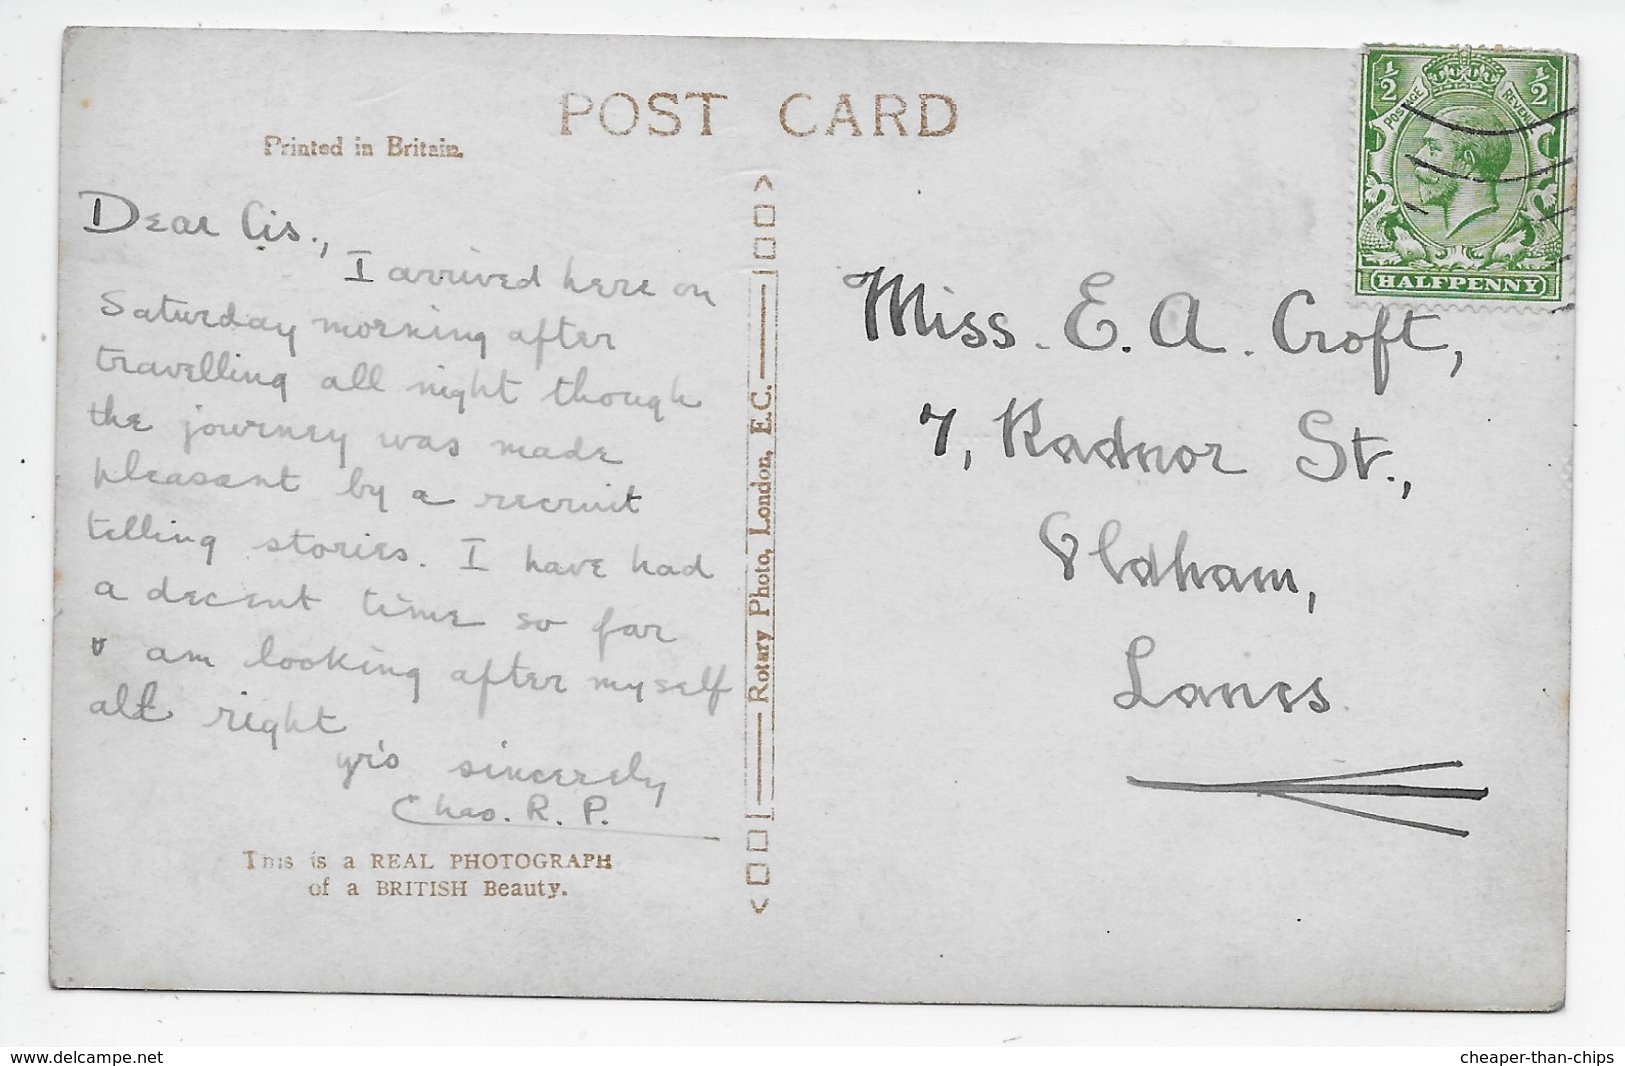 POST CARD
Printed in Britain.
Dear Cis.,
I arrived here on
Saturday morning after
travelling all night though
the journey was made
pleasant by a recruit
telling stories. I have had
a decent time so far
& am looking after myself
all right
yrs sincerely
Chas. R. P.
This is a REAL PHOTOGRAPH
of a BRITISH Beauty.
Rotary Photo, London, E.C.
1/2 1/2
POSTAGE REVENUE
HALFPENNY
Miss. E. A. Croft,
7, Radnor St.,
Oldham,
Lancs.
www.delcampe.net
cheaper-than-chips